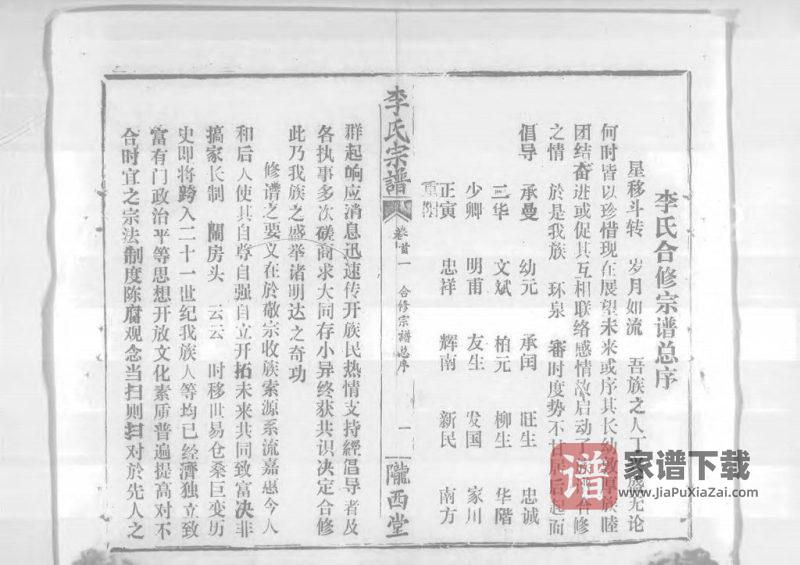 李氏合修宗谱总序
星移斗转 岁月如流 吾族之人丁 无论
何时皆以珍惜现在展望未来或序其长幼敦厚族睦
团结奋进或促其互相联络感情故启动了 合修
之情 於是我族 环泉 审时度势不 居后起而
倡导 承曼 幼元 承闰 旺生 忠诚
三华 文斌 柏元 柳生 华階
少卿 明甫 友生 发国 家川
正寅 忠祥 辉南 新民 南方
重附
李氏宗譜 卷首一 合修宗谱总序 一 隴西堂
群起响应消息迅速传开族民热情支持經倡导者及
各执事多次磋商求大同存小异终获共识决定合修
此乃我族之盛举诸明达之奇功
修谱之要义在於敬宗收族索源系流嘉惠今人
和后人使其自尊自强自立开拓未来共同致富决非
搞家长制 闢房头 云云 时移世易仓桑巨变历
史即将跨入二十一世纪我族人等均已经济独立致
富有门政治平等思想开放文化素质普遍提高对不
合时宜之宗法制度陈腐观念当扫则扫对於先人之
谱
家谱下载
www.jiaPuXiaZai.com